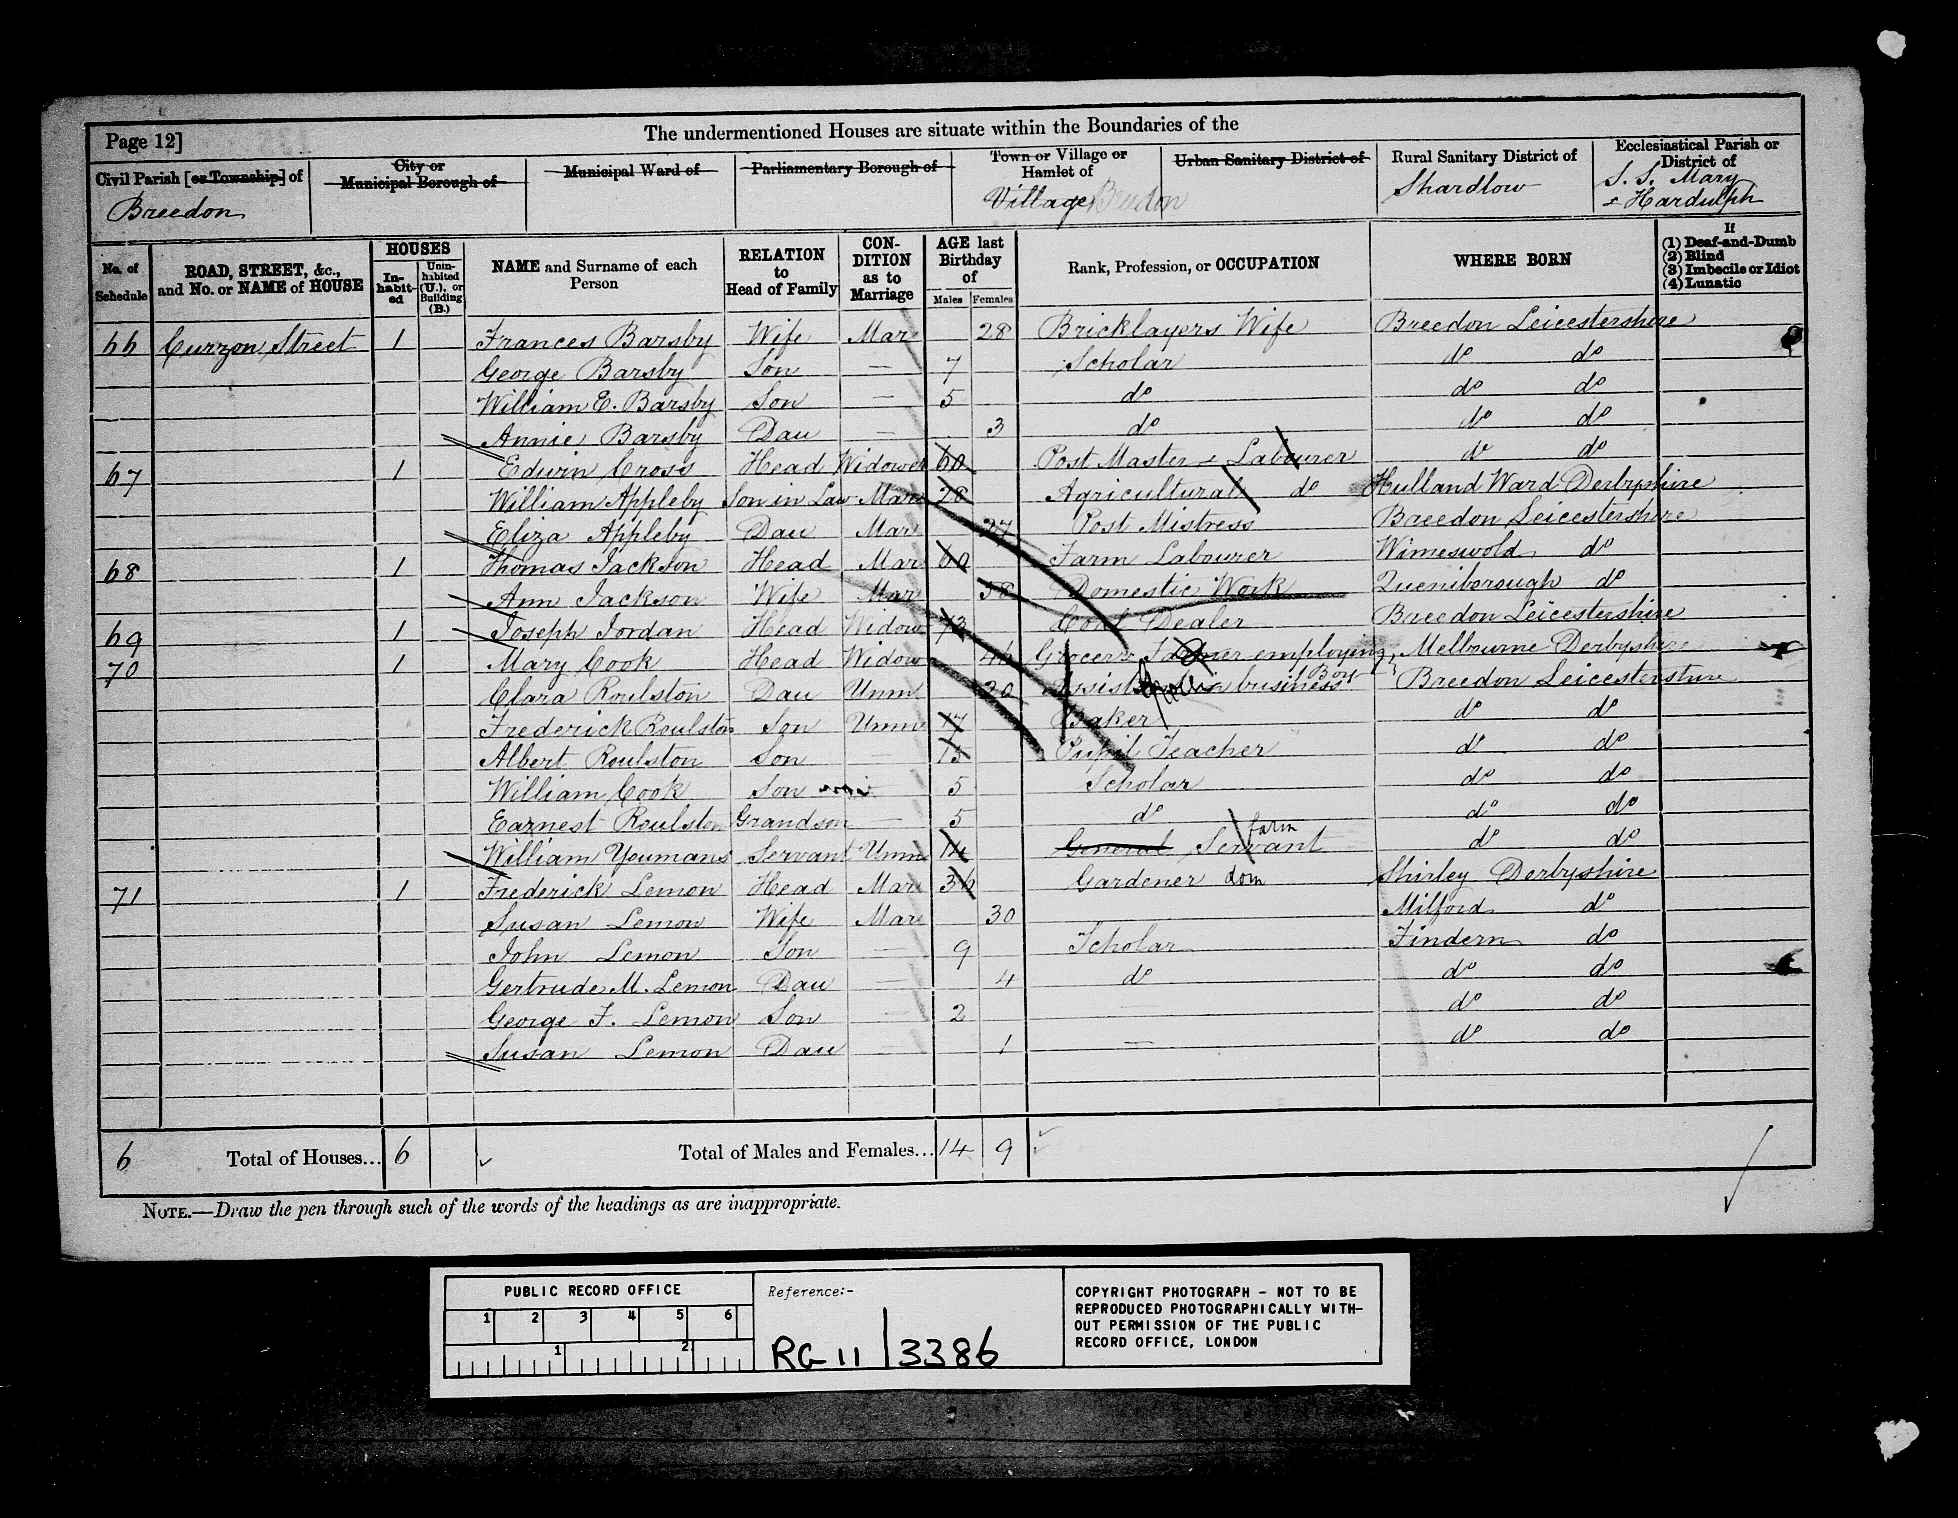 Page 12]
The undermentioned Houses are situate within the Boundaries of the
Civil Parish [or Township] of
Breedon
City or
Municipal Borough of
Municipal Ward of
Parliamentary Borough of
Town or Village or
Hamlet of
Village Breedon
Urban Sanitary District of
Rural Sanitary District of
Shardlow
Ecclesiastical Parish or
District of
S. S. Mary
& Hardulph
No. of Schedule
ROAD, STREET, &c., and No. or NAME of HOUSE
HOUSES
In-habit-ed
Unin-habited (U.), or Building (B.)
NAME and Surname of each Person
RELATION to Head of Family
CON-DITION as to Marriage
AGE last Birthday of
Males Females
Rank, Profession, or OCCUPATION
WHERE BORN
If
(1) Deaf-and-Dumb
(2) Blind
(3) Imbecile or Idiot
(4) Lunatic
66 Curzon Street 1 Frances Barsby Wife Mar 28 Bricklayers Wife Breedon Leicestershire
George Barsby Son — 7 Scholar do do
William E. Barsby Son — 5 do do do
Annie Barsby Dau — 3 do do do
67 1 Edwin Cross Head Widower 60 Post Master & Labourer do do
William Appleby Son in Law Mar 28 Agricultural do Hulland Ward Derbyshire
Eliza Appleby Dau Mar 27 Post Mistress Breedon Leicestershire
68 1 Thomas Jackson Head Mar 60 Farm Labourer Wimeswold do
Ann Jackson Wife Mar 58 Domestic Work Queniborough do
69 1 Joseph Jordan Head Widow 73 Coal Dealer Breedon Leicestershire
70 1 Mary Cook Head Widow 46 Grocer & Farmer employing 1 Boy Melbourne Derbyshire
Clara Roulston Dau Unm 20 Assist in business Breedon Leicestershire
Frederick Roulston Son Unm 17 Baker do do
Albert Roulston Son 15 Pupil Teacher do do
William Cook Son 5 Scholar do do
Earnest Roulston Grandson — 5 do do do
William Youmans Servant Unm 14 General Servant farm do do
71 1 Frederick Lemon Head Mar 36 Gardener dom Shirley Derbyshire
Susan Lemon Wife Mar 30 Milford do
John Lemon Son — 9 Scholar Findern do
Gertrude M. Lemon Dau — 4 do do do
George F. Lemon Son — 2 do do
Susan Lemon Dau — 1 — do do
6 Total of Houses... 6 Total of Males and Females... 14 9
NOTE.—Draw the pen through such of the words of the headings as are inappropriate.
PUBLIC RECORD OFFICE
1 2 3 4 5 6
1 2
Reference:-
RG 11 / 3386
COPYRIGHT PHOTOGRAPH – NOT TO BE
REPRODUCED PHOTOGRAPHICALLY WITH-
OUT PERMISSION OF THE PUBLIC
RECORD OFFICE, LONDON